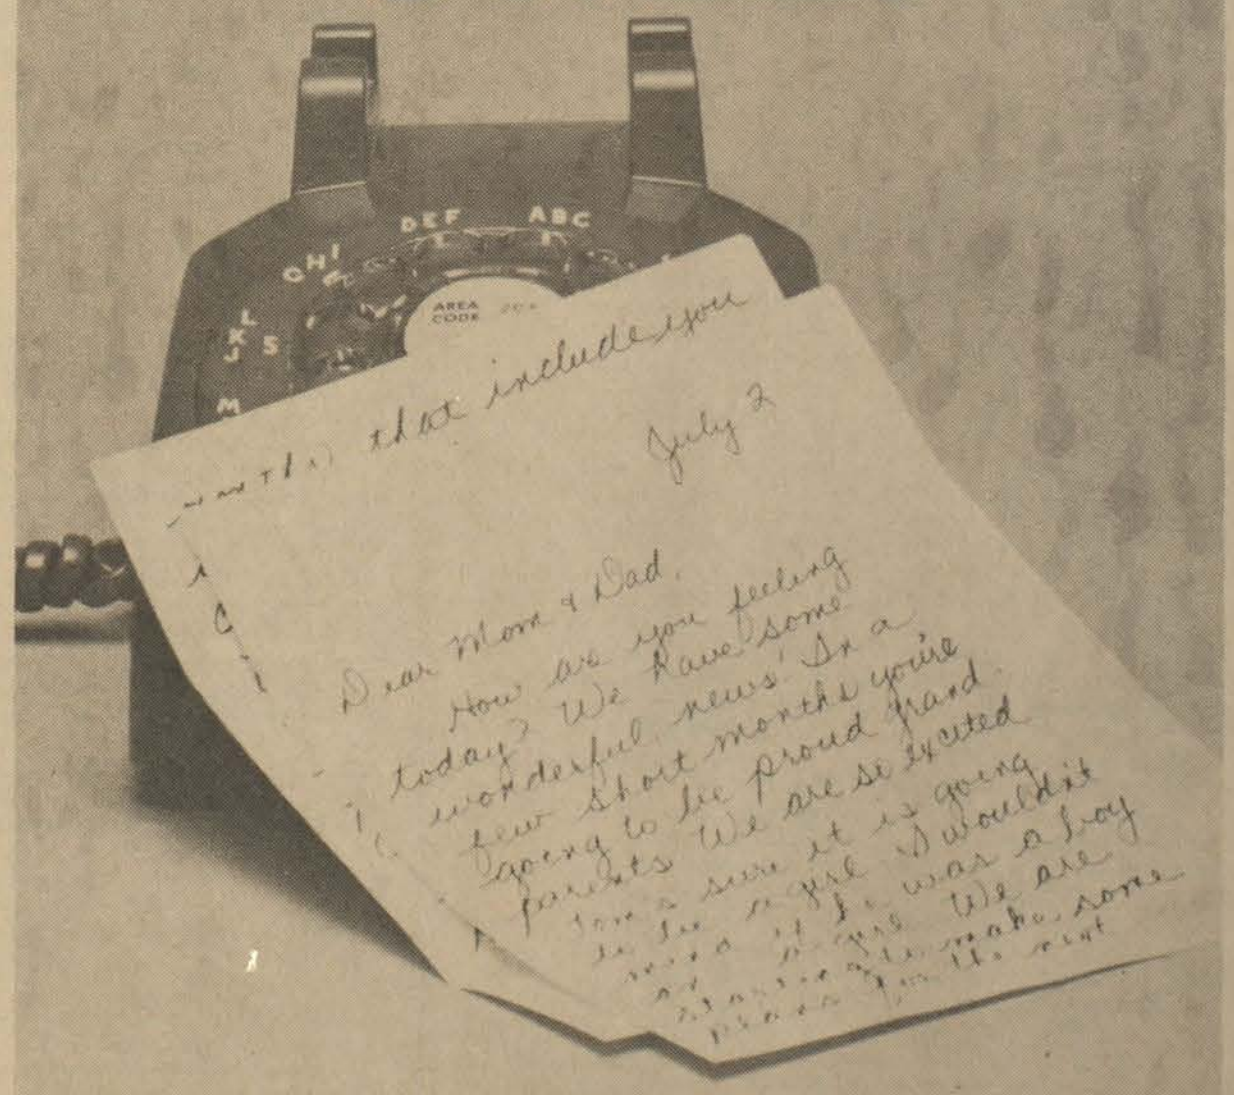 DEF
ABC
GHI
JKL
5
M
AREA CODE 20
that include you
July 2
Dear Mom & Dad,
How are you feeling
today? We have some
wonderful news! In a
few short months you're
going to be proud grand
parents We are so excited
Tom's sure it is going
to be a girl I wouldn't
mind if it was a boy
or a girl We are
starting to make some
plans for the next